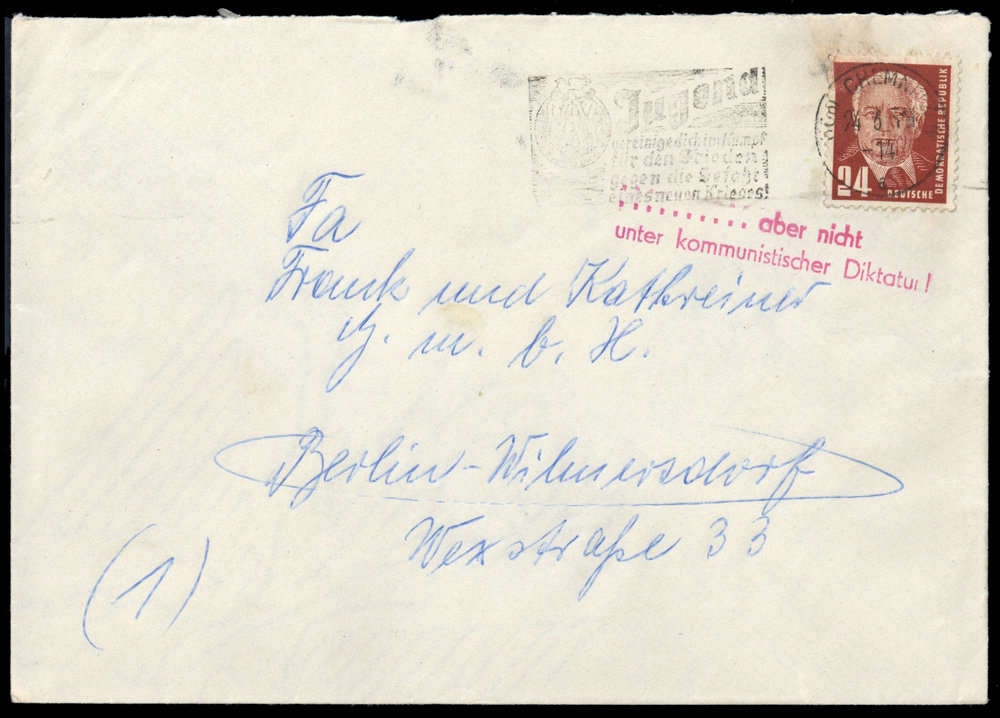 Jugend
vereinige dich im Kampf
für den Frieden
gegen die Gefahr
eines neuen Krieges!
CHEMN
24
DEUTSCHE
DEMOKRATISCHE REPUBLIK
.......... aber nicht
unter kommunistischer Diktatur!
Fa
Franck und Kathreiner
G. m. b. H.
Berlin-Wilmersdorf
Wexstraße 33
(1)